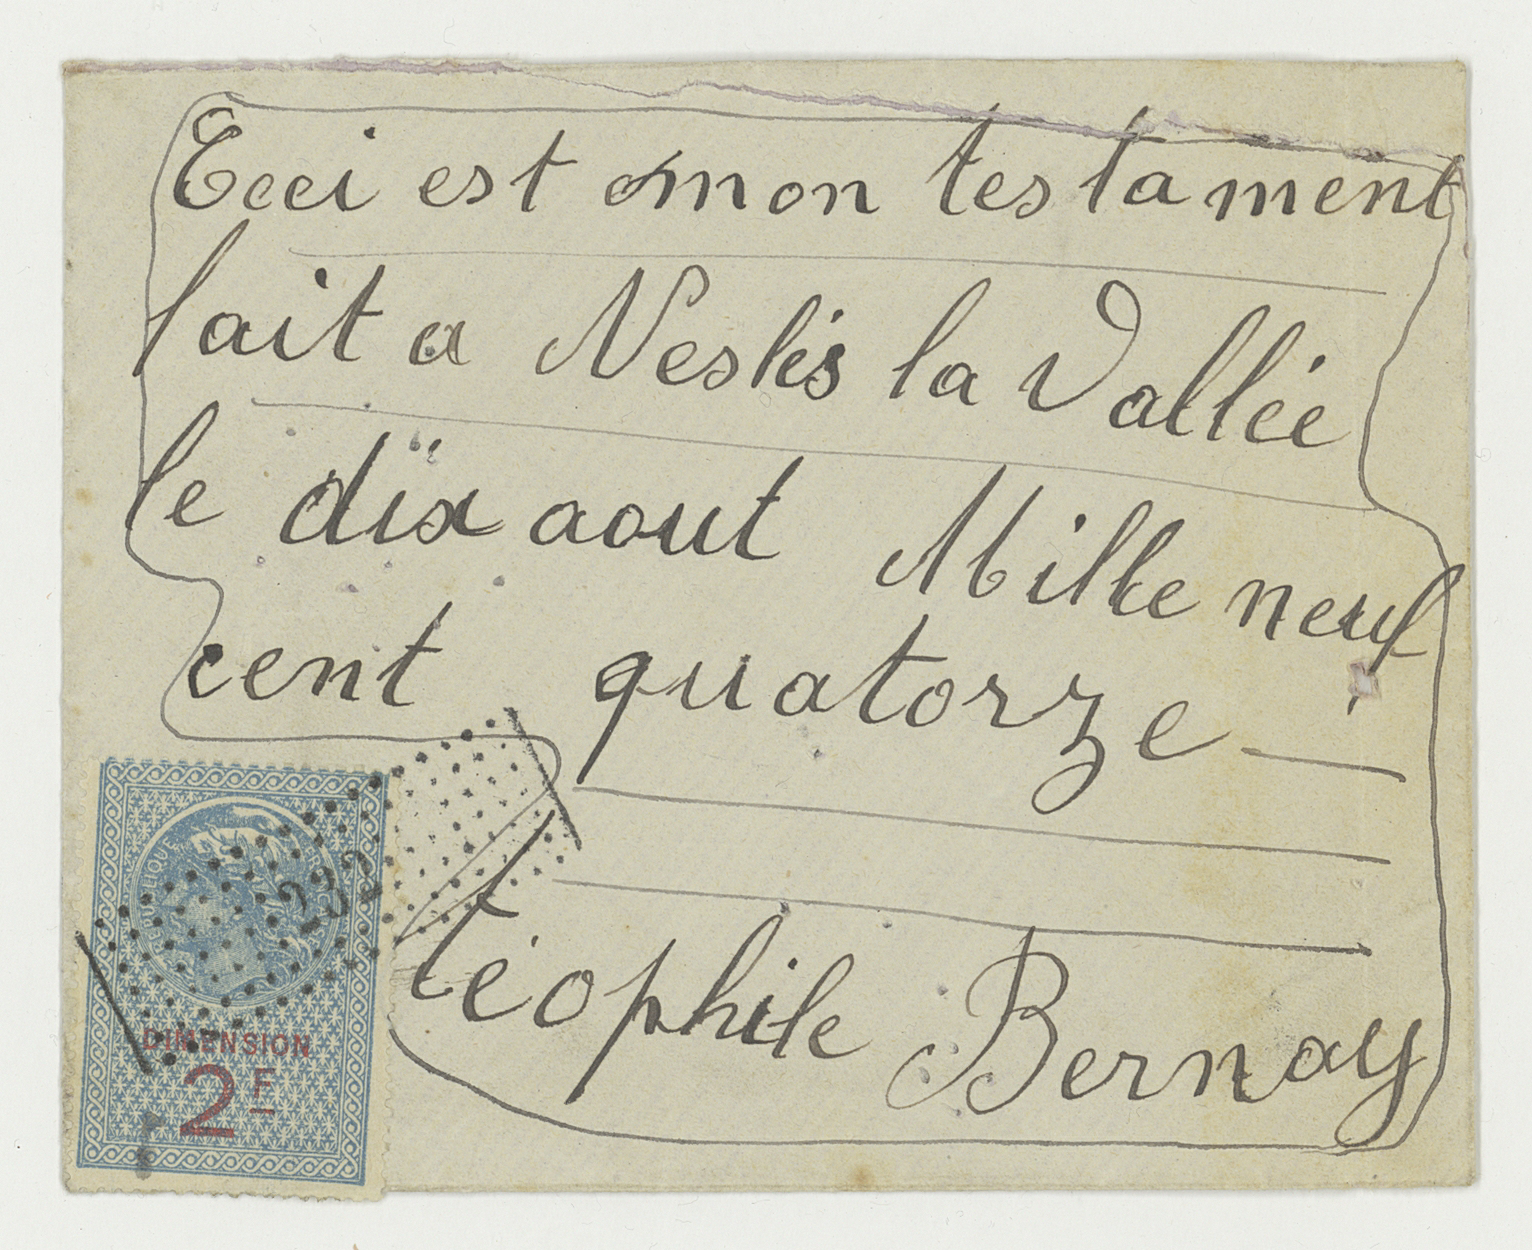 Ceci est mon testament
fait a Neslés la Vallée
le dix aout Mille neuf
cent quatorze
téophile Bernay
RÉPUBLIQUE
232
DIMENSION
2F